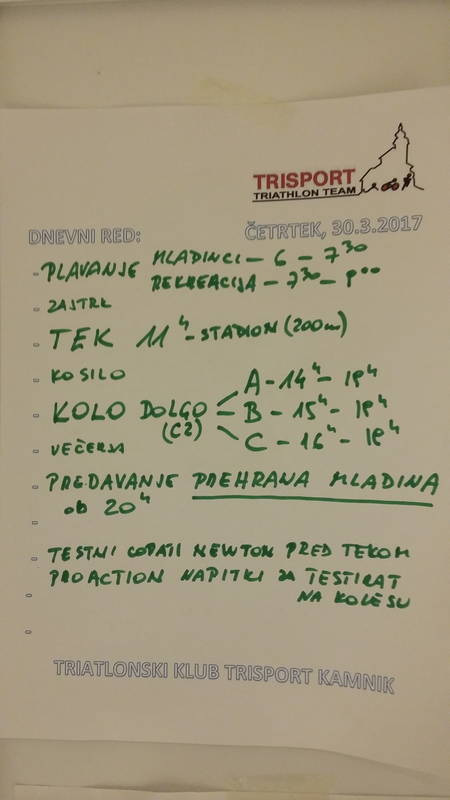 TRISPORT
TRIATHLON TEAM
DNEVNI RED: ČETRTEK, 30.3.2017
- PLAVANJE MLADINCI - 6 - 7³⁰
REKREACIJA - 7³⁰ - 9⁰⁰
- ZAJTRK
- TEK 11ʰ - STADION (200m)
- KOSILO
- KOLO DOLGO (C2)
A - 14ʰ - 18ʰ
B - 15ʰ - 18ʰ
C - 16ʰ - 18ʰ
- VEČERJA
- PREDAVANJE PREHRANA MLADINA
ob 20ʰ
- TESTNI COPATI NEWTON PRED TEKOM
PROACTION NAPITKI za TESTIRAT
NA KOLESU
TRIATLONSKI KLUB TRISPORT KAMNIK